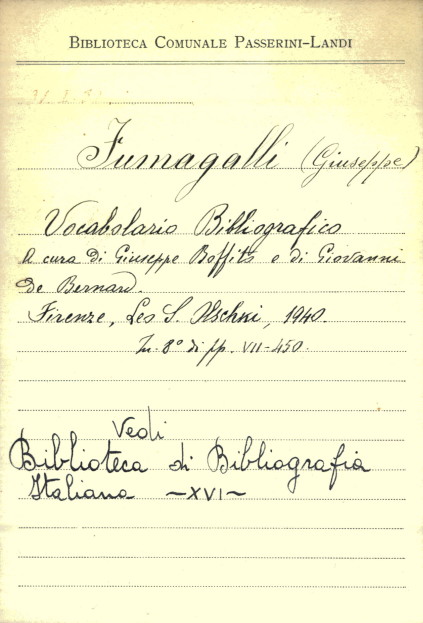 BIBLIOTECA COMUNALE PASSERINI-LANDI
Fumagalli (Giuseppe)
Vocabolario Bibliografico
A cura di Giuseppe Boffito e di Giovanni
de Bernard.
Firenze, Leo S. Olschki, 1940.
In. 8° di pp. VII-450.
Vedi
Biblioteca di Bibliografia
Italiana ~XVI~